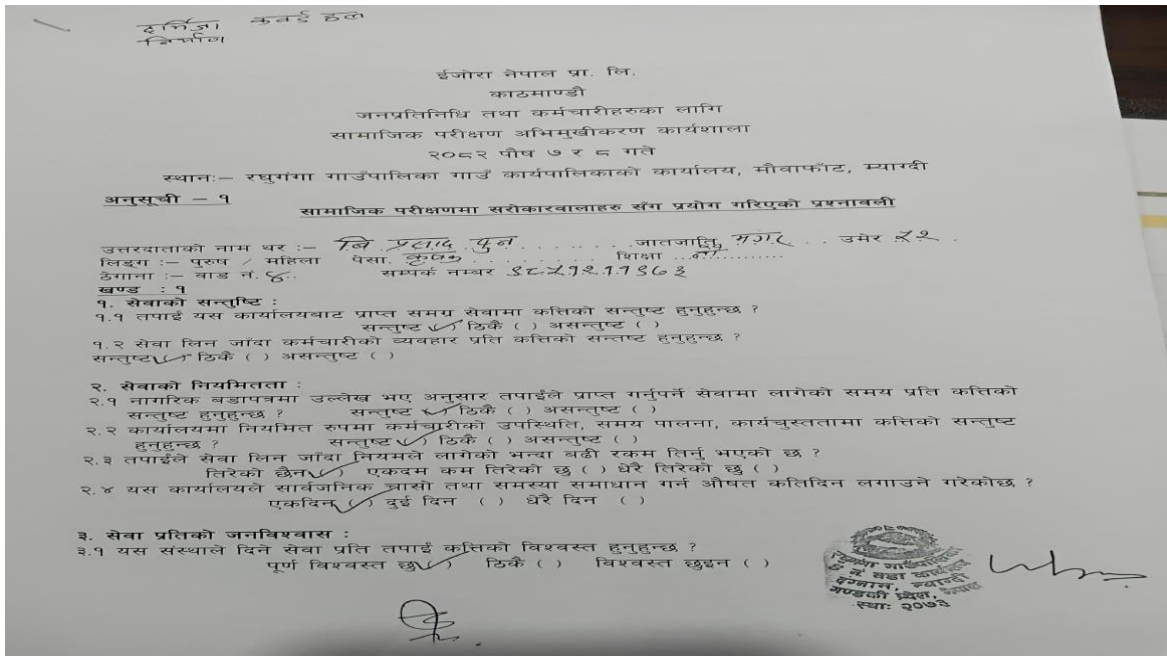 दर्मिजा कवर्ड हल
निर्माण
ईजोरा नेपाल प्रा. लि.
काठमाण्डौ
जनप्रतिनिधि तथा कर्मचारीहरुका लागि
सामाजिक परीक्षण अभिमुखीकरण कार्यशाला
२०८२ पौष ७ र ८ गते
स्थानः– रघुगंगा गाउँपालिका गाउँ कार्यपालिकाको कार्यालय, मौवाफाँट, म्याग्दी
अनुसूची – १
सामाजिक परीक्षणमा सरोकारवालाहरु सँग प्रयोग गरिएको प्रश्नावली
उत्तरदाताको नाम थर :– प्रसाद पुन जातजाति मगर उमेर
लिङ्ग :– पुरुष / महिला पेसा. शिक्षा
ठेगाना :– वाड नं. ४ सम्पर्क नम्बर
खण्ड : १
१. सेवाको सन्तुष्टि :
१.१ तपाई यस कार्यालयबाट प्राप्त समग्र सेवामा कत्तिको सन्तुष्ट हुनुहुन्छ ?
सन्तुष्ट (✓) ठिकै ( ) असन्तुष्ट ( )
१.२ सेवा लिन जाँदा कर्मचारीको व्यवहार प्रति कत्तिको सन्तष्ट हुनुहुन्छ ?
सन्तुष्ट (✓) ठिकै ( ) असन्तुष्ट ( )
२. सेवाको नियमितता :
२.१ नागरिक बडापत्रमा उल्लेख भए अनुसार तपाईले प्राप्त गर्नुपर्ने सेवामा लागेको समय प्रति कत्तिको
सन्तुष्ट हुनुहुन्छ ? सन्तुष्ट (✓) ठिकै ( ) असन्तुष्ट ( )
२.२ कार्यालयमा नियमित रुपमा कर्मचारीको उपस्थिति, समय पालना, कार्यचुस्ततामा कत्तिको सन्तुष्ट
हुनुहुन्छ ? सन्तुष्ट (✓) ठिकै ( ) असन्तुष्ट ( )
२.३ तपाईले सेवा लिन जाँदा नियमले लागेको भन्दा बढी रकम तिर्नु भएको छ ?
तिरेको छैन (✓) एकदम कम तिरेको छु ( ) धेरै तिरेको छु ( )
२.४ यस कार्यालयले सार्वजनिक चासो तथा समस्या समाधान गर्न औषत कतिदिन लगाउने गरेकोछ ?
एकदिन (✓) दुई दिन ( ) धेरै दिन ( )
३. सेवा प्रतिको जनविश्वास :
३.१ यस संस्थाले दिने सेवा प्रति तपाई कत्तिको विश्वस्त हुनुहुन्छ ?
पूर्ण विश्वस्त छु (✓) ठिकै ( ) विश्वस्त छुइन ( )
रघुगंगा गाउँपालिका
४ नं. वडा कार्यालय
दग्नाम, म्याग्दी
गण्डकी प्रदेश, नेपाल
स्थाः २०७३